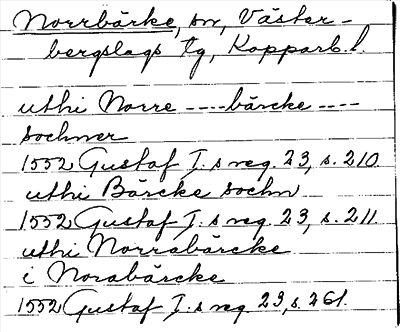 Norrbärke, sn, Väster-
bergslags tg, Kopparb. l.
uthi Norre ----bärcke ----
sochner
1552 Gustaf I. s reg. 23, s. 210
uthi Bärcke sochn
1552 Gustaf I. s reg. 23, s. 211
uthi Norrabärcke
i Norabärcke
1552 Gustaf I. s reg 23, s. 261.